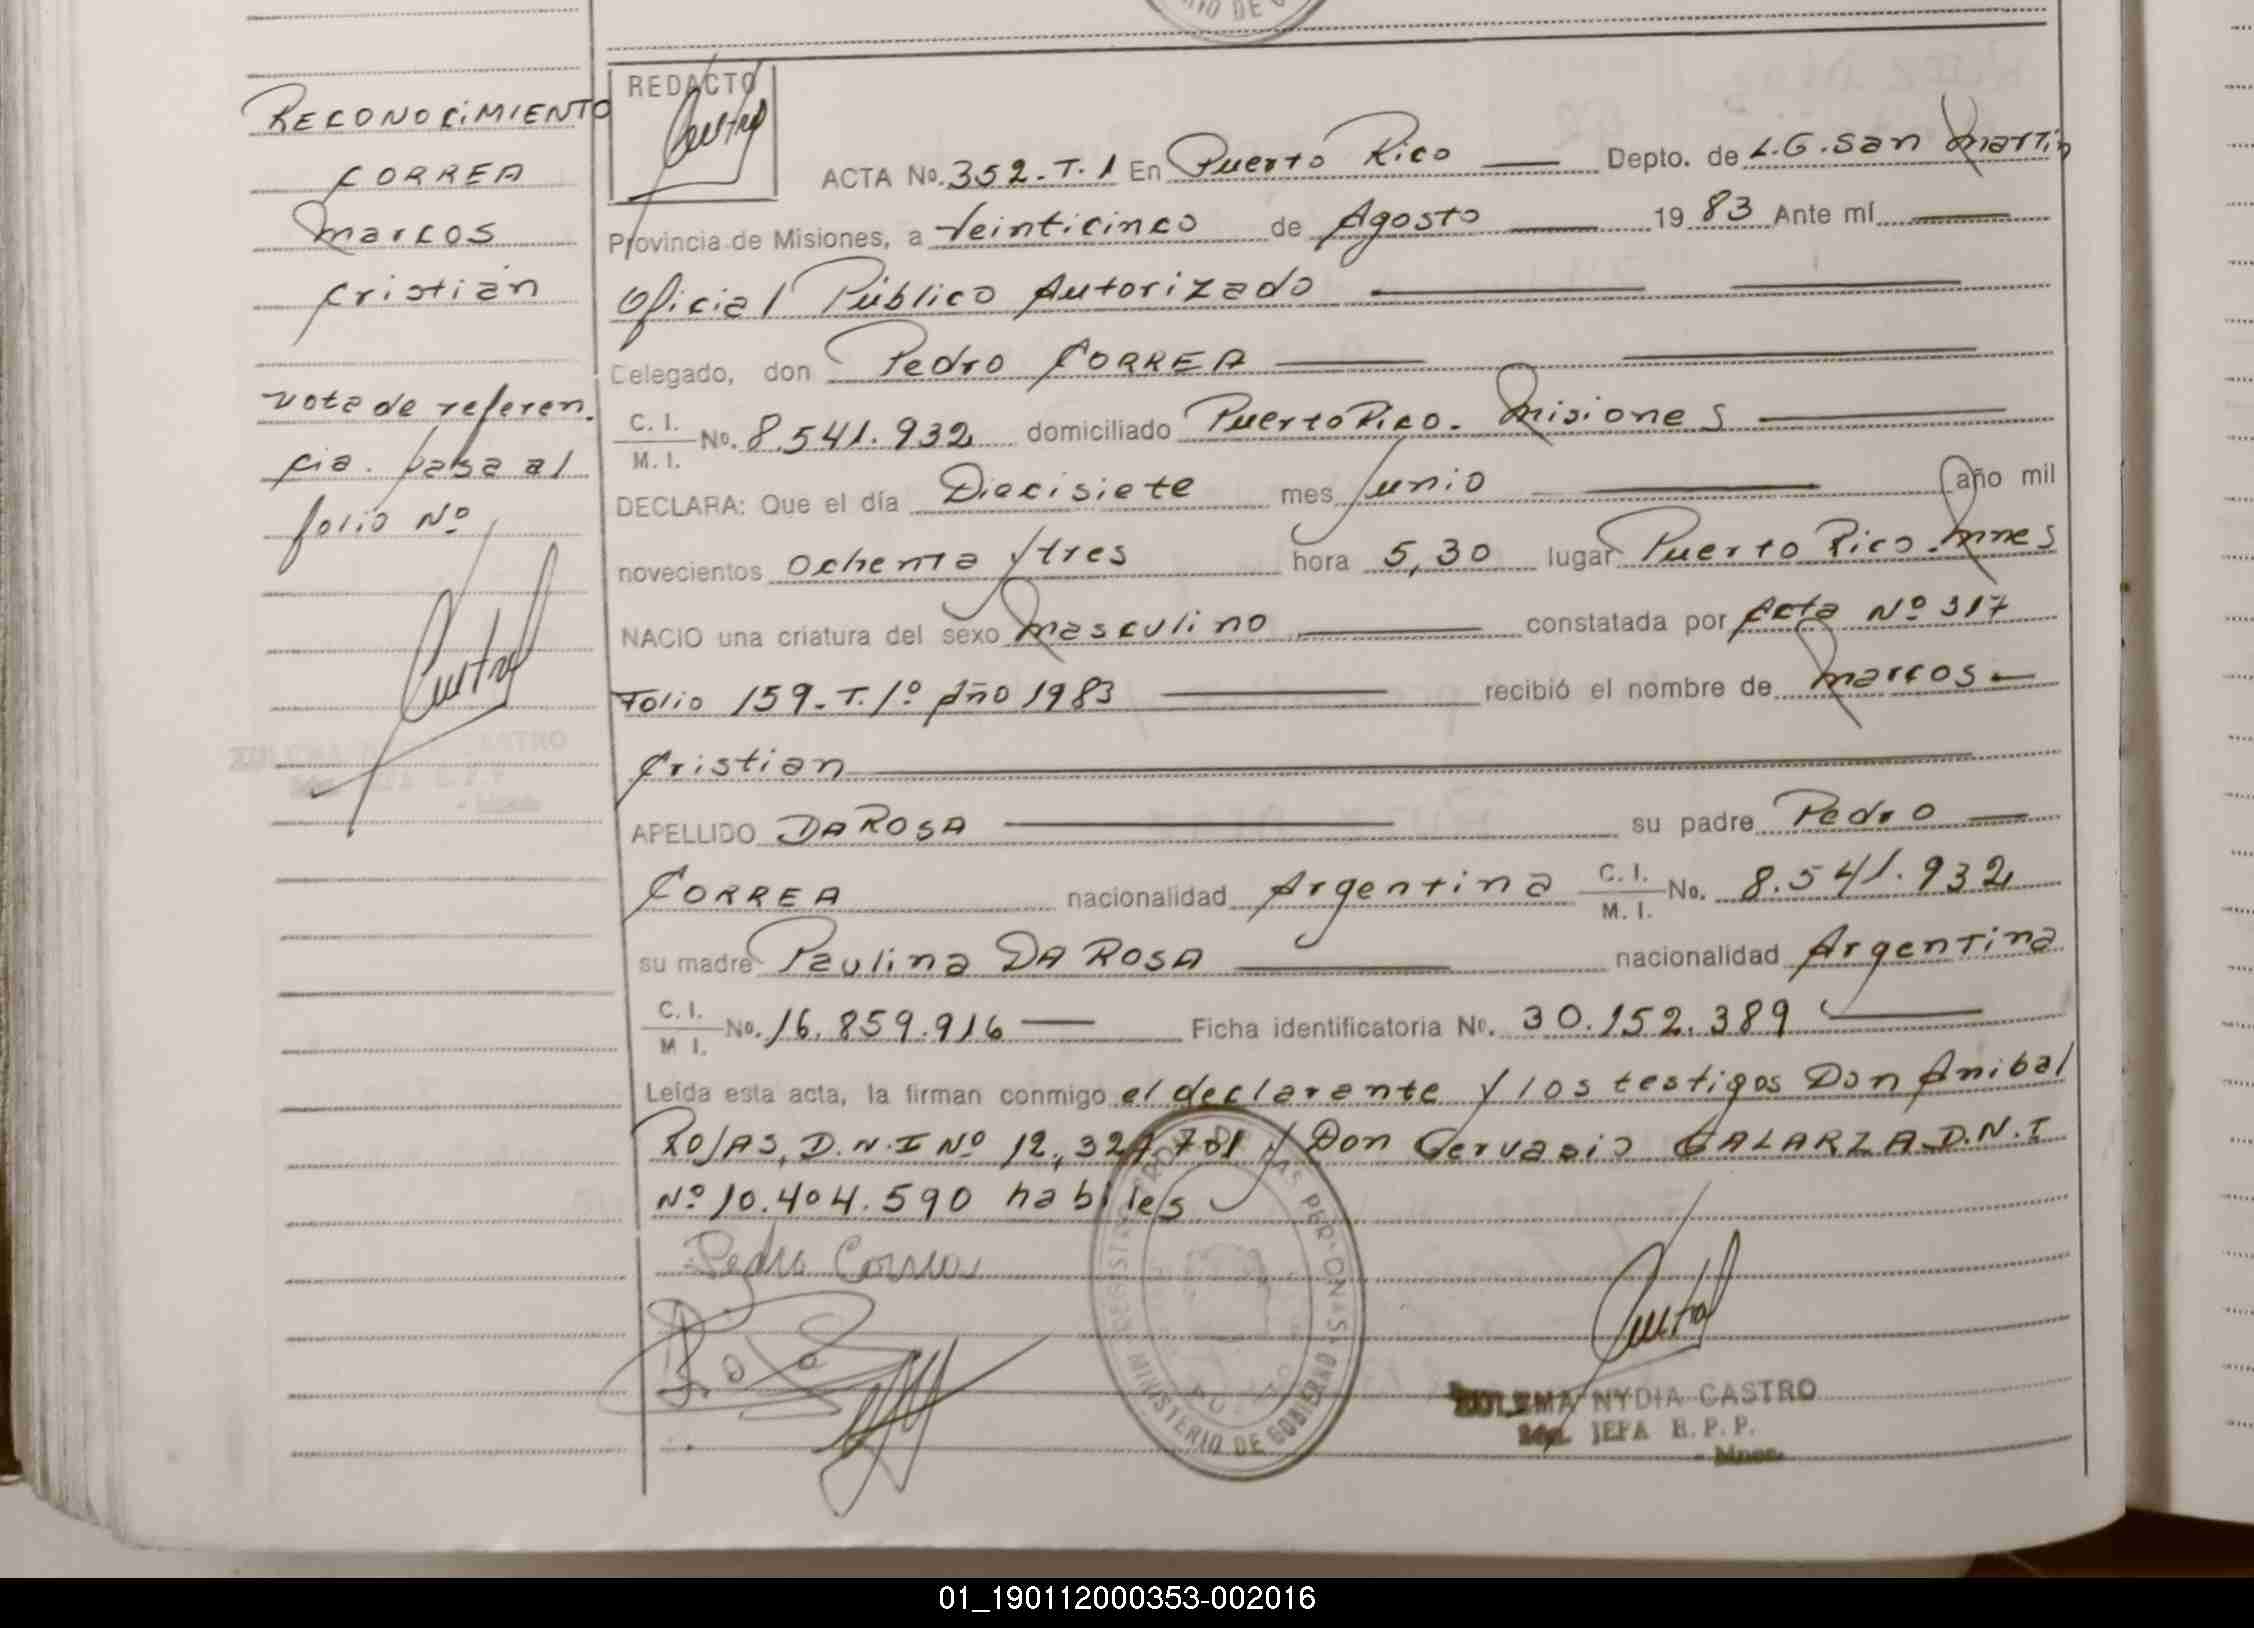 RIO DE
RECONOCIMIENTO
CORREA
Marcos
Cristian
Nota de referen.
cia. pasa al
folio Nº
Castro
REDACTO
Castro
ACTA No. 352-T.1 En Puerto Rico Depto. de L.G. San Martin
Provincia de Misiones, a Veinticinco de Agosto 19 83 Ante mí
Oficial Público Autorizado
Celegado, don Pedro CORREA
C. I.
M. I. No. 8.541.932 domiciliado Puerto Rico. Misiones
DECLARA: Que el día Diecisiete mes Junio año mil
novecientos Ochenta y tres hora 5,30 lugar Puerto Rico. Mnes
NACIO una criatura del sexo Masculino constatada por Acta Nº 317
Folio 159-T.1º Año 1983 recibió el nombre de Marcos
Cristian
APELLIDO DA ROSA su padre Pedro
CORREA nacionalidad Argentina C. I.
M. I. No. 8.541.932
su madre Paulina DA ROSA nacionalidad Argentina
C. I.
M I. No. 16.859.916 Ficha identificatoria No. 30.152.389
Leída esta acta, la firman conmigo el declarante y los testigos Don Anibal
ROJAS, D.N.I Nº 12.327.701 y Don Gervasio GALARZA D.N.I
Nº 10.404.590 habiles
Pedro Correa
MINISTERIO DE GOBIERNO
Castro
ZULEMA NYDIA CASTRO
JEFA R.P.P.
- Mnes.
01_190112000353-002016